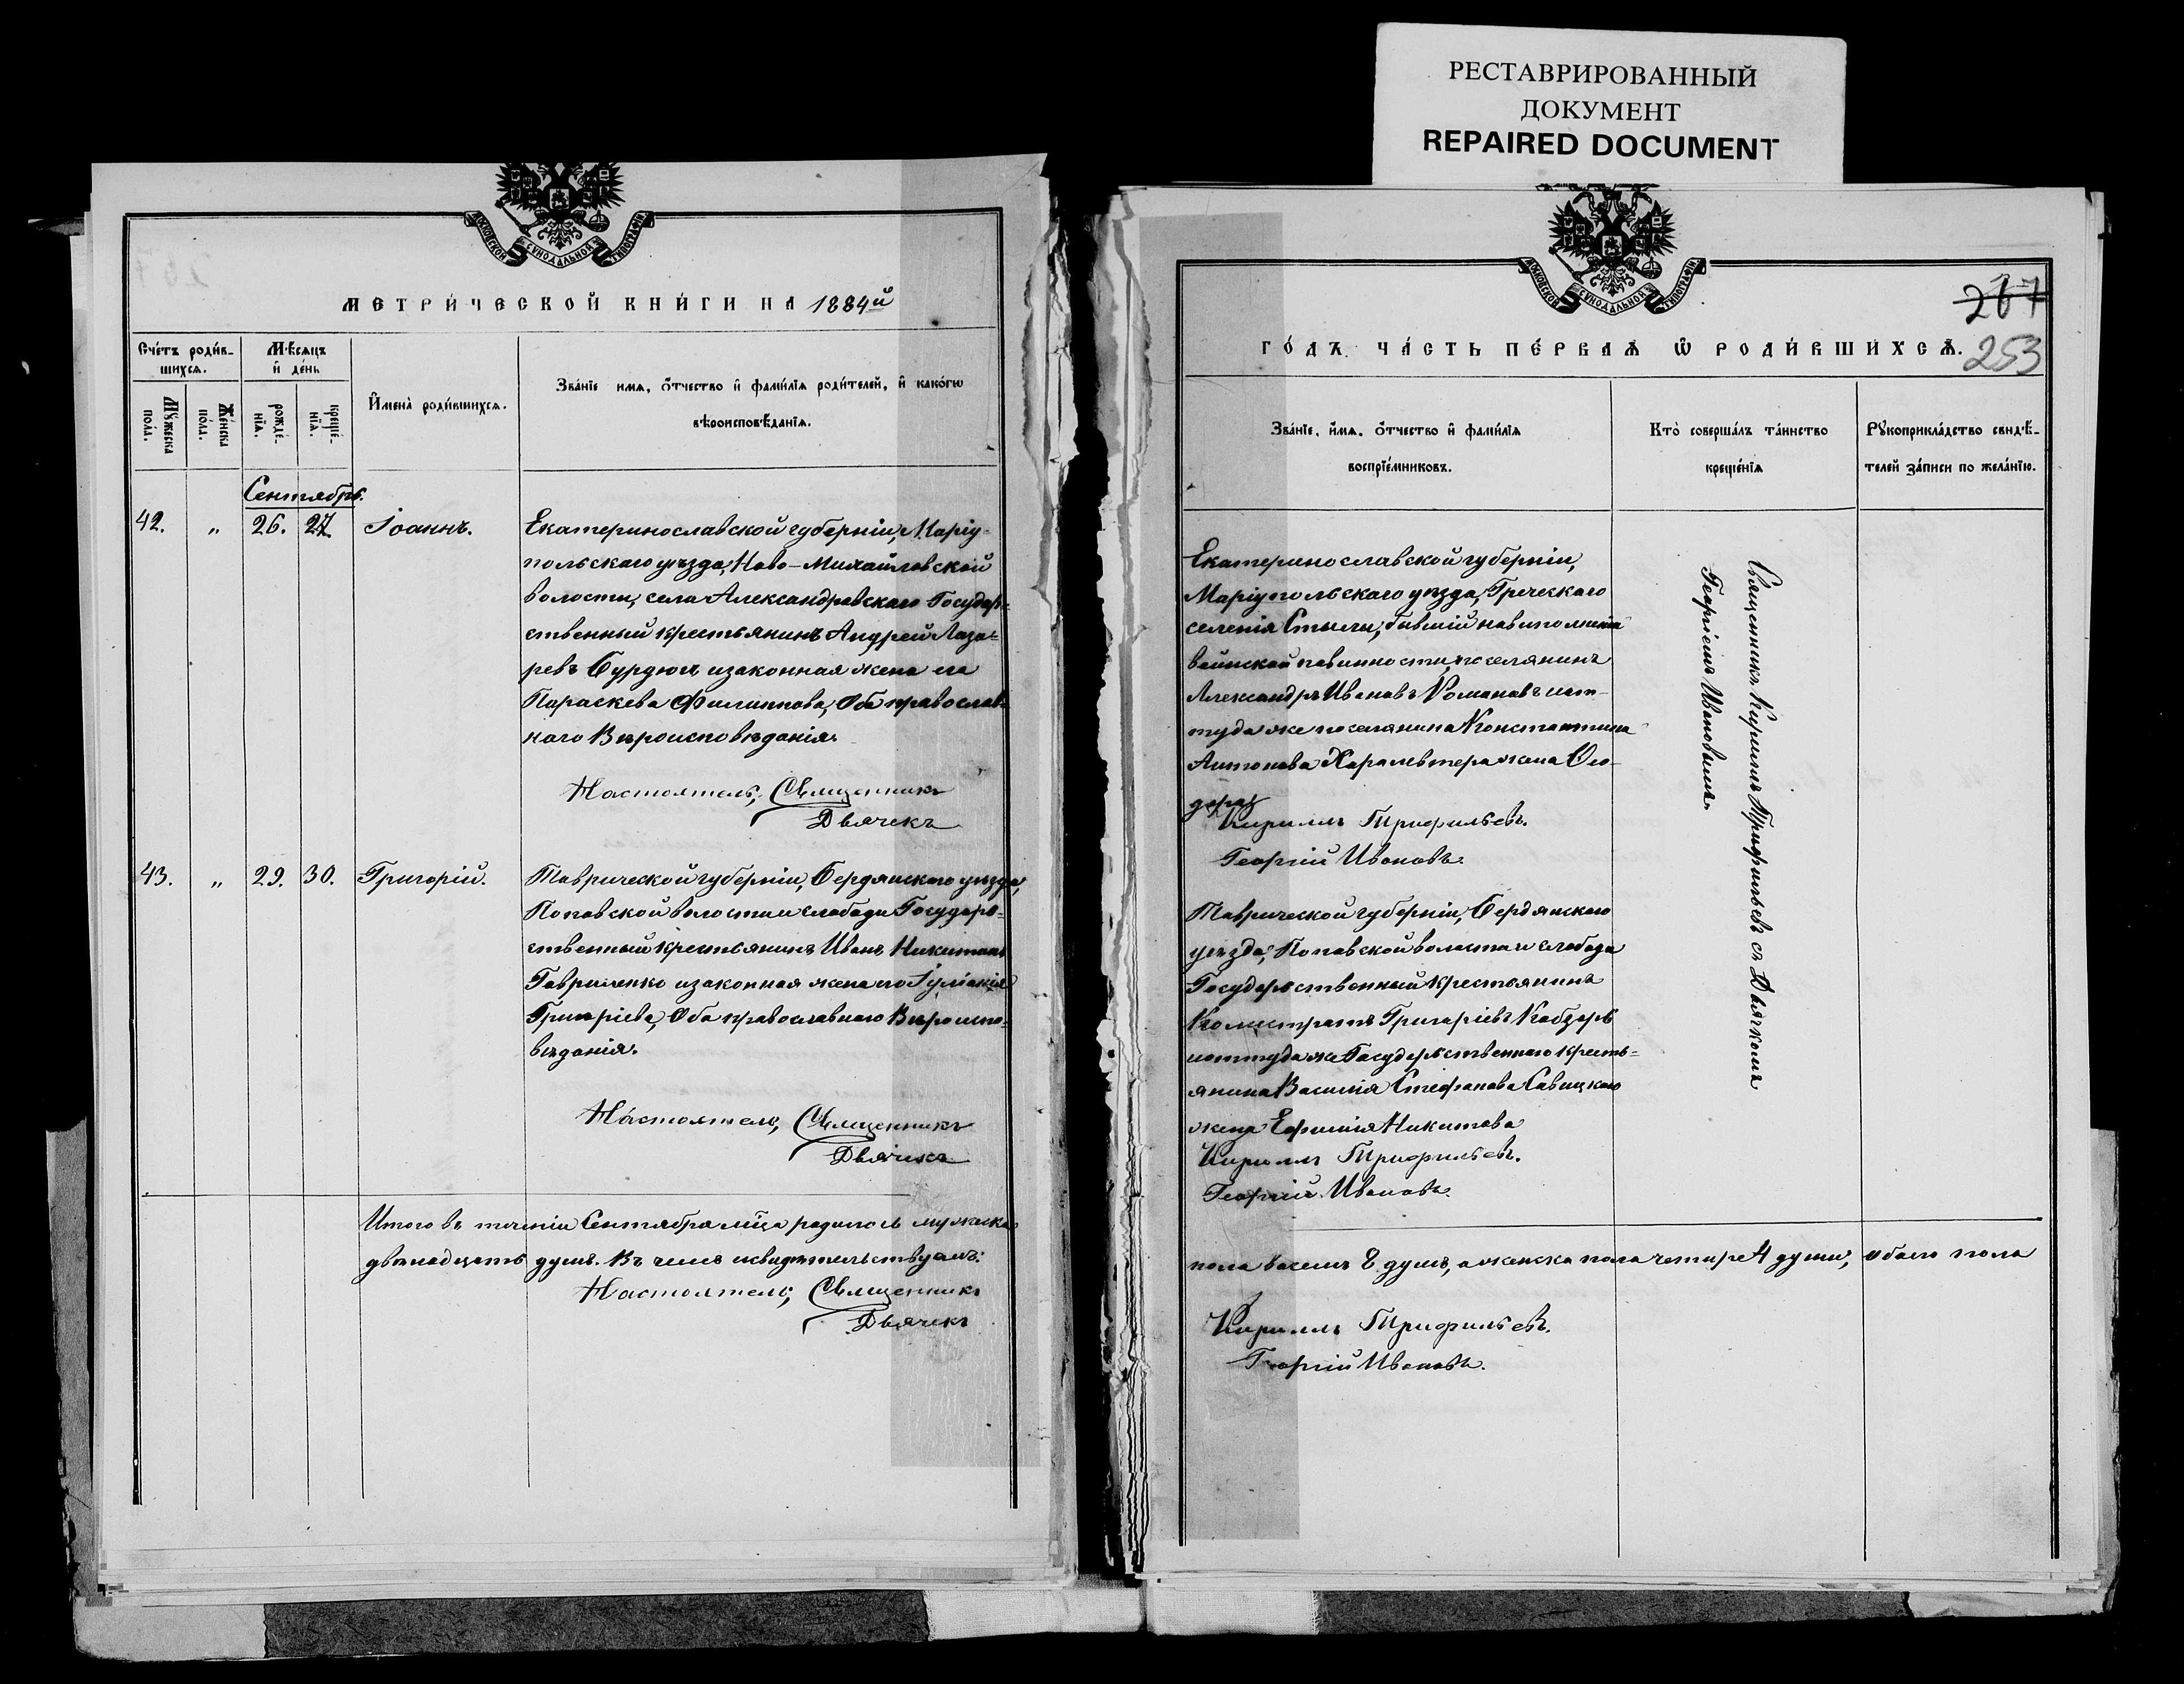 РЕСТАВРИРОВАННЫЙ
ДОКУМЕНТ
REPAIRED DOCUMENT
МОСКОВСКОЙ СѴНОДАЛЬНОЙ ТИПОГРАФІИ
МЕТРИ́ЧЕСКОЙ КНИ́ГИ НА 1884й
Сче́тъ роди́в-
шихся.
Мѣ́сяцъ
и́ де́нь
Мꙋ́жеска
по́ла.
Же́нска
по́ла.
рожде́-
нїя.
креще́-
нїя.
И҆мена̀ роди́вшихся.
Зва́нїе имя, ѻ҆́тчество и҆ фами́лїя роди́телей, и҆ како́гѡ
вѣроисповѣ́данїя.
Сентябрь.
42. „ 26. 27. Іоаннъ.
Екатеринославской губерніи, Маріу-
польскаго уѣзда, Ново-Михайловской
волости, села Александровскаго Государ-
ственный крестьянинъ Андрей Лаза-
ревъ Бурдюгъ изаконная жена его
Параскева Филиппова, Оба православ-
наго Вѣроисповѣданія.
Настоятель, Священникъ
Дьячекъ
43. „ 29. 30. Григорій.
Таврической губерніи, Бердянскаго уѣзда,
Поповской волости и слободы Государ-
ственный крестьянинъ Иванъ Никитинъ
Гавриленко изаконная жена его Іуліанія
Григоріева, Оба православнаго Вѣроиспо-
вѣданія.
Настоятель, Священникъ
Дьячекъ
Итого въ теченіи Сентября мѣсяца родилось мужеска
двѣнадцать душъ. Въ чемъ исвидѣтельствуемъ:
Настоятель, Священникъ
Дьячекъ
МОСКОВСКОЙ СѴНОДАЛЬНОЙ ТИПОГРАФІИ
267
253
ГО́ДЪ. ЧА́СТЬ ПЕ́РВАЯ Ѽ РОДИ́ВШИХСЯ.
Зва́нїе, и҆́мя, ѻ҆́тчество и҆ фами́лїя
воспрїе́мниковъ.
Кто̀ соверша́лъ та́инство
креще́нїя
Рꙋкоприкла́дство свидѣ́-
телей за́писи по жела́нїю.
Екатеринославской губерніи,
Маріупольскаго уѣзда, Греческаго
селенія Стылы, бывшій
воинской повинности поселянинъ
Александръ Ивановъ Романовъ иот-
туда же поселянина Константина
Антонова жена Ѳео-
дора
Кириллъ Трифильевъ.
Георгій Ивановъ.
Таврической губерніи, Бердянскаго
уѣзда, Поповской волости и слободы
Государственный крестьянинъ
Калистратъ Григоріевъ Кобзарь
иоттуда же Государственнаго кресть-
янина Василія Стефанова Савицкаго
жена Евфимія Никитова
Кириллъ Трифильевъ.
Георгій Ивановъ.
Священникъ Кириллъ Трифильевъ съ Дьячкомъ
Георгіемъ Ивановымъ.
пола восемъ 8 душъ, а женска пола четыре 4 души, обоего пола
Кириллъ Трифильевъ.
Георгій Ивановъ.